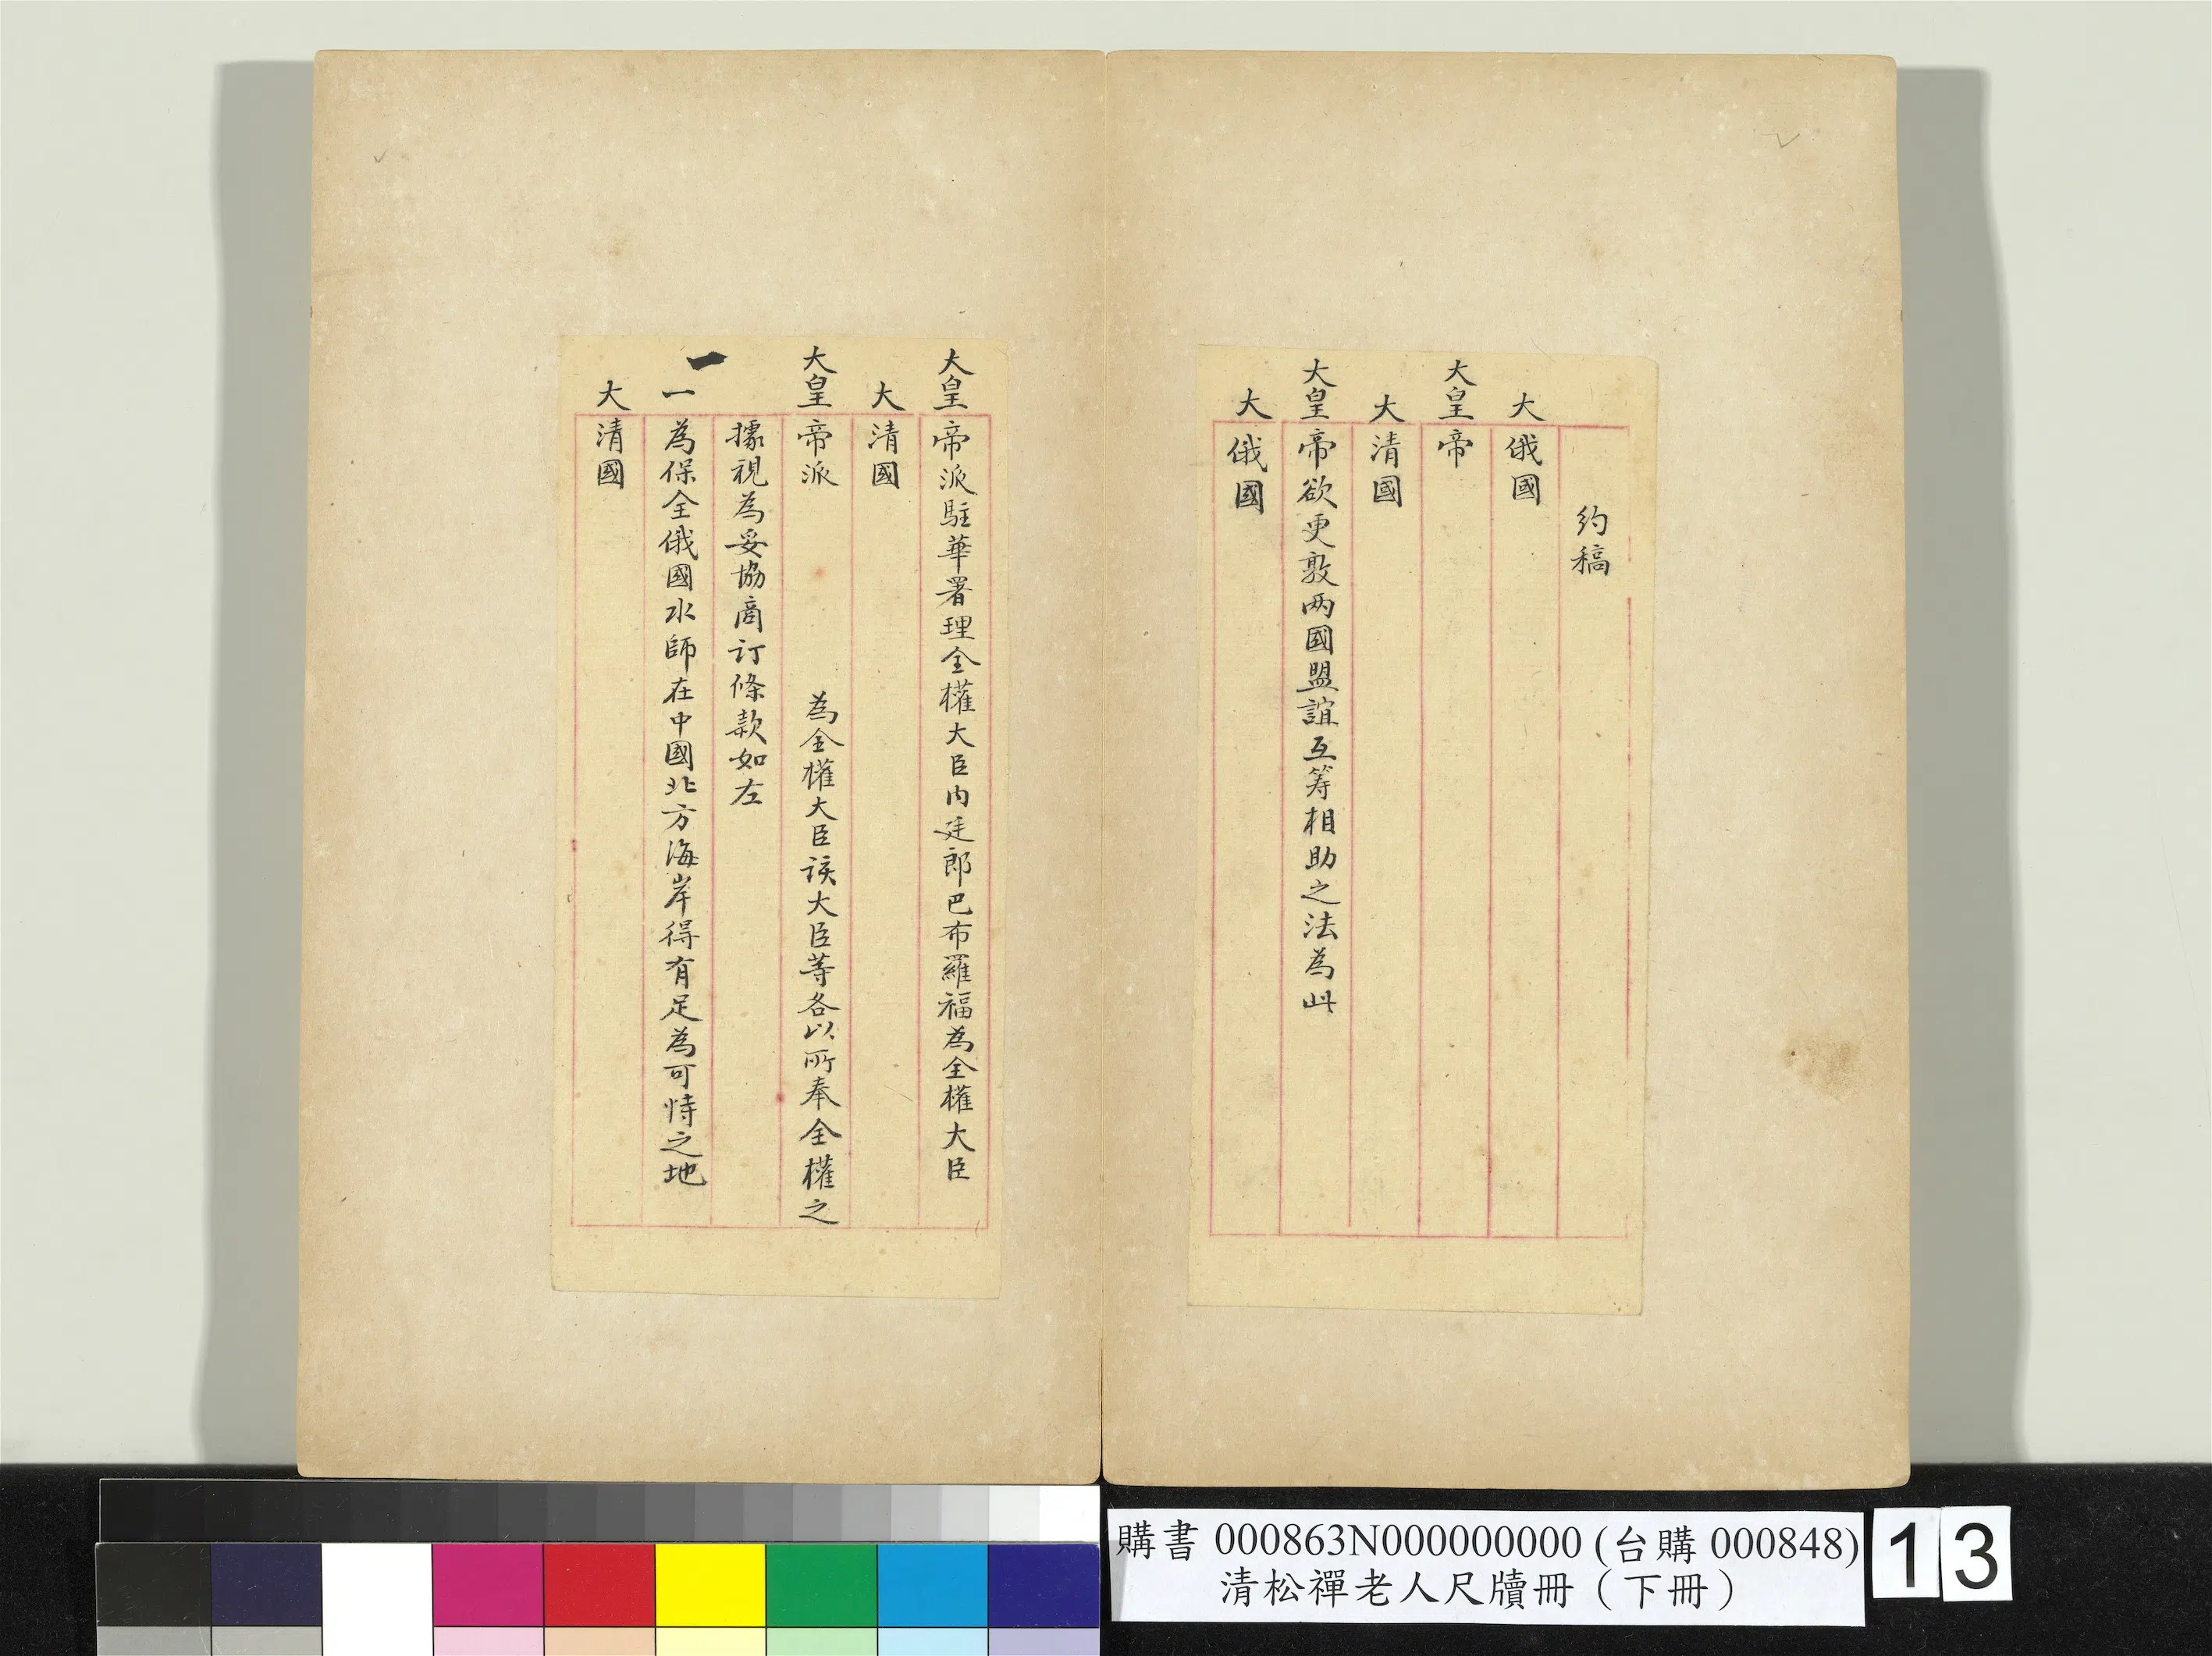 約稿
大俄國
大皇帝
大清國
大皇帝欲更敦两國盟誼互筹相助之法為此
大俄國
大皇帝派駐華署理全權大臣內廷郎巴布羅福為全權大臣
大清國
大皇帝派 為全權大臣該大臣等各以所奉全權之
據視為妥協商订條款如左
一
一為保全俄國水師在中國北方海岸得有足為可恃之地
大清國
購書 000863N000000000 (台購 000848)
清松禪老人尺牘冊（下冊）
13